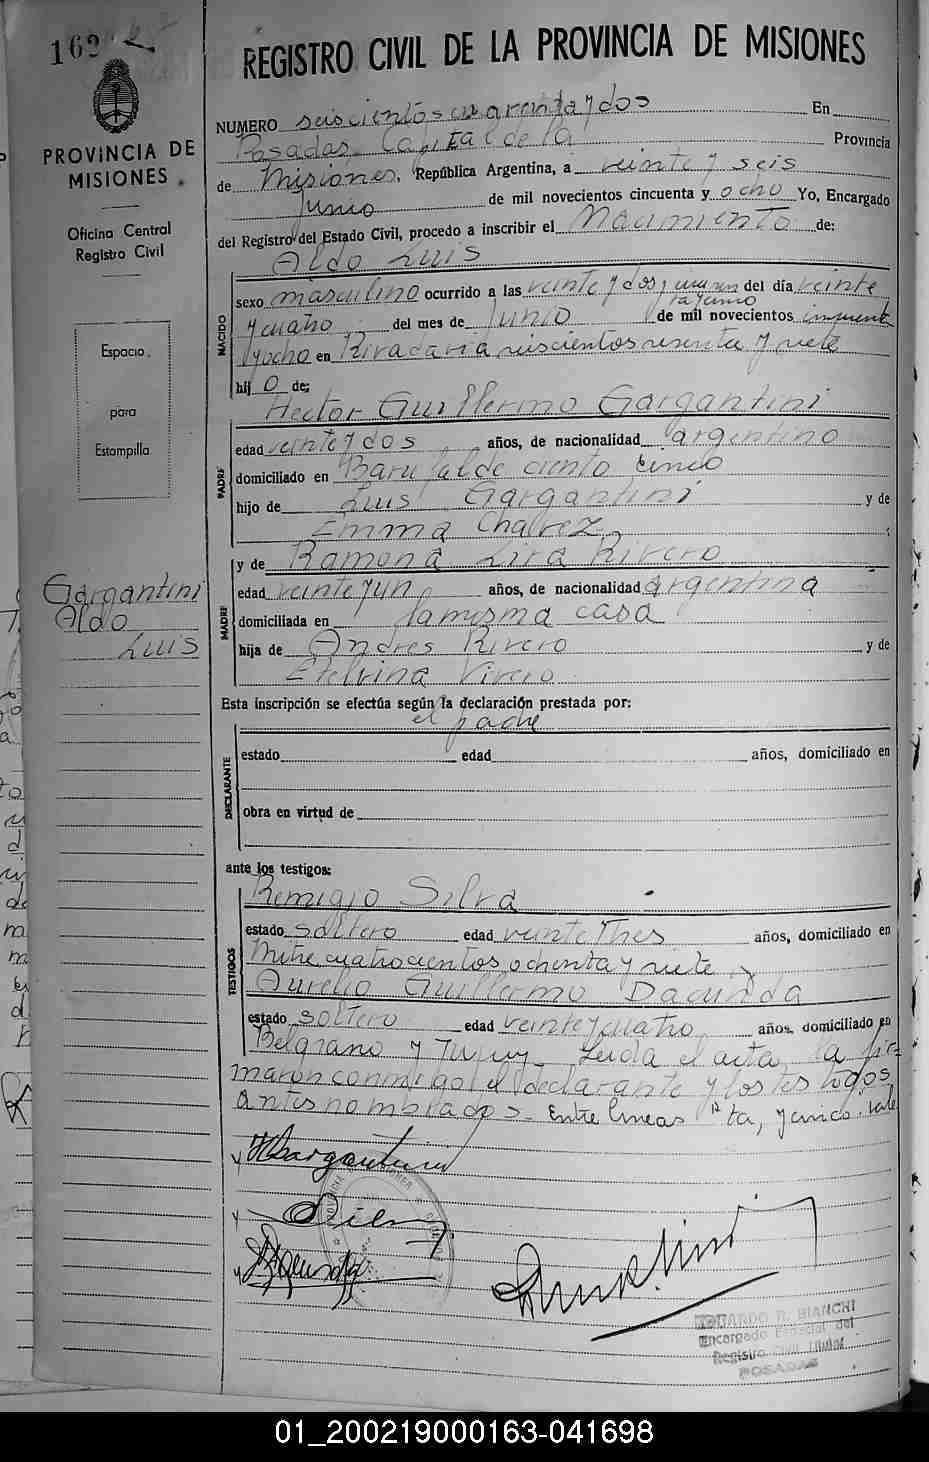 162
REGISTRO CIVIL DE LA PROVINCIA DE MISIONES
PROVINCIA DE
MISIONES
Oficina Central
Registro Civil
Espacio
para
Estampilla
Gargantini
Aldo
Luis
NUMERO seiscientos cuarenta y dos En
Posadas Capital de la Provincia
de Misiones, República Argentina, a veinte y seis
Junio de mil novecientos cincuenta y ocho Yo, Encargado
del Registro del Estado Civil, procedo a inscribir el Nacimiento de:
Aldo Luis
NACIDO
sexo masculino ocurrido a las veinte y dos y del día veinte
y cuatro del mes de Junio de mil novecientos cincuenta
y ocho en Rivadavia seiscientos sesenta y siete
hij o de:
Hector Guillermo Gargantini
PADRE
edad veinte y dos años, de nacionalidad argentino
domiciliado en ciento cinco
hijo de Luis Gargantini y de
Emma Chavez
y de Ramona Lira Rivero
MADRE
edad veinte y un años, de nacionalidad argentina
domiciliada en la misma casa
hija de Andres Rivero y de
Etelvina Vivero
Esta inscripción se efectúa según la declaración prestada por:
el padre
DECLARANTE
estado edad años, domiciliado en
obra en virtud de
ante los testigos:
Remigio Silva
TESTIGOS
estado soltero edad veinte tres años, domiciliado en
Mitre cuatrocientos ochenta y siete y
Aurelio Guillermo Dacunda
estado soltero edad veinte y cuatro años, domiciliado en
Belgrano y Jujuy Leida el acta, la fir-
maron conmigo el declarante y los testigos
antes nombrados - Entre lineas ta, y cinco: vale
EDUARDO R. BIANCHI
Encargado Especial del
Registro Civil
POSADAS
01_200219000163-041698